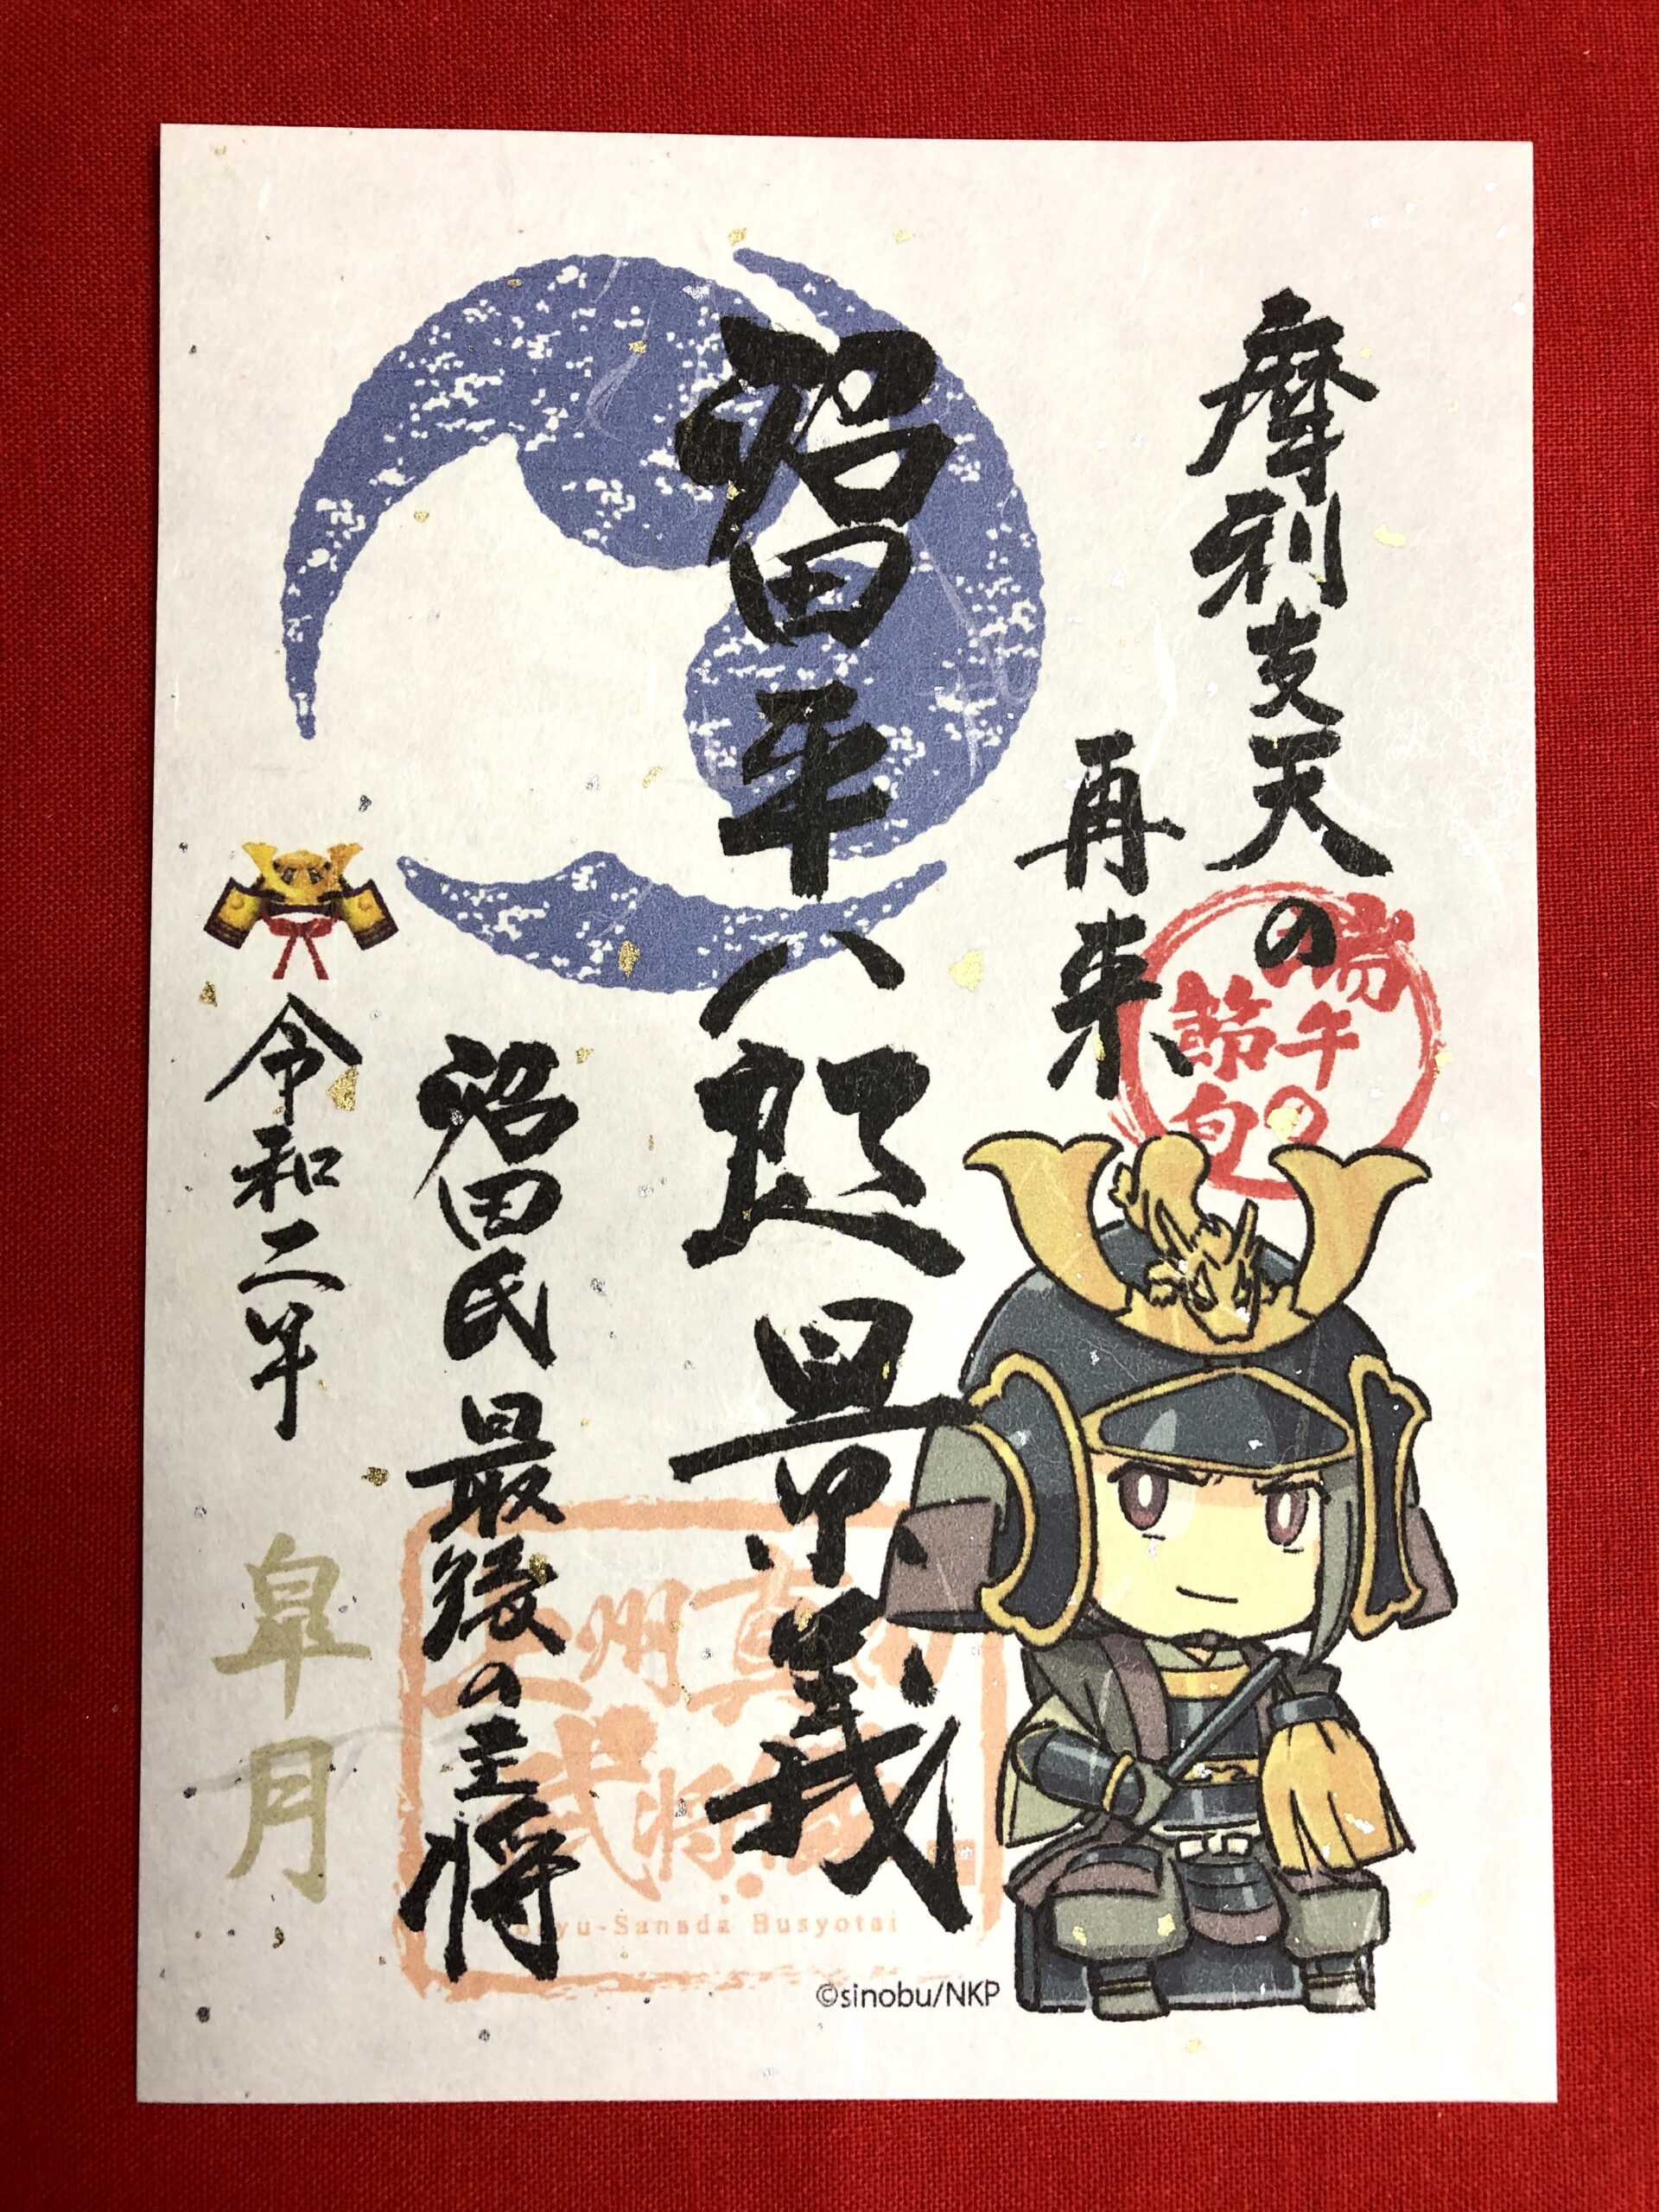 摩利支天の
再来
端午の
節句
沼田平八郎景義
沼田氏最後の主将
令和二年
皐月
上州真田
武将隊
-Sanada Busyotai
©sinobu/NKP